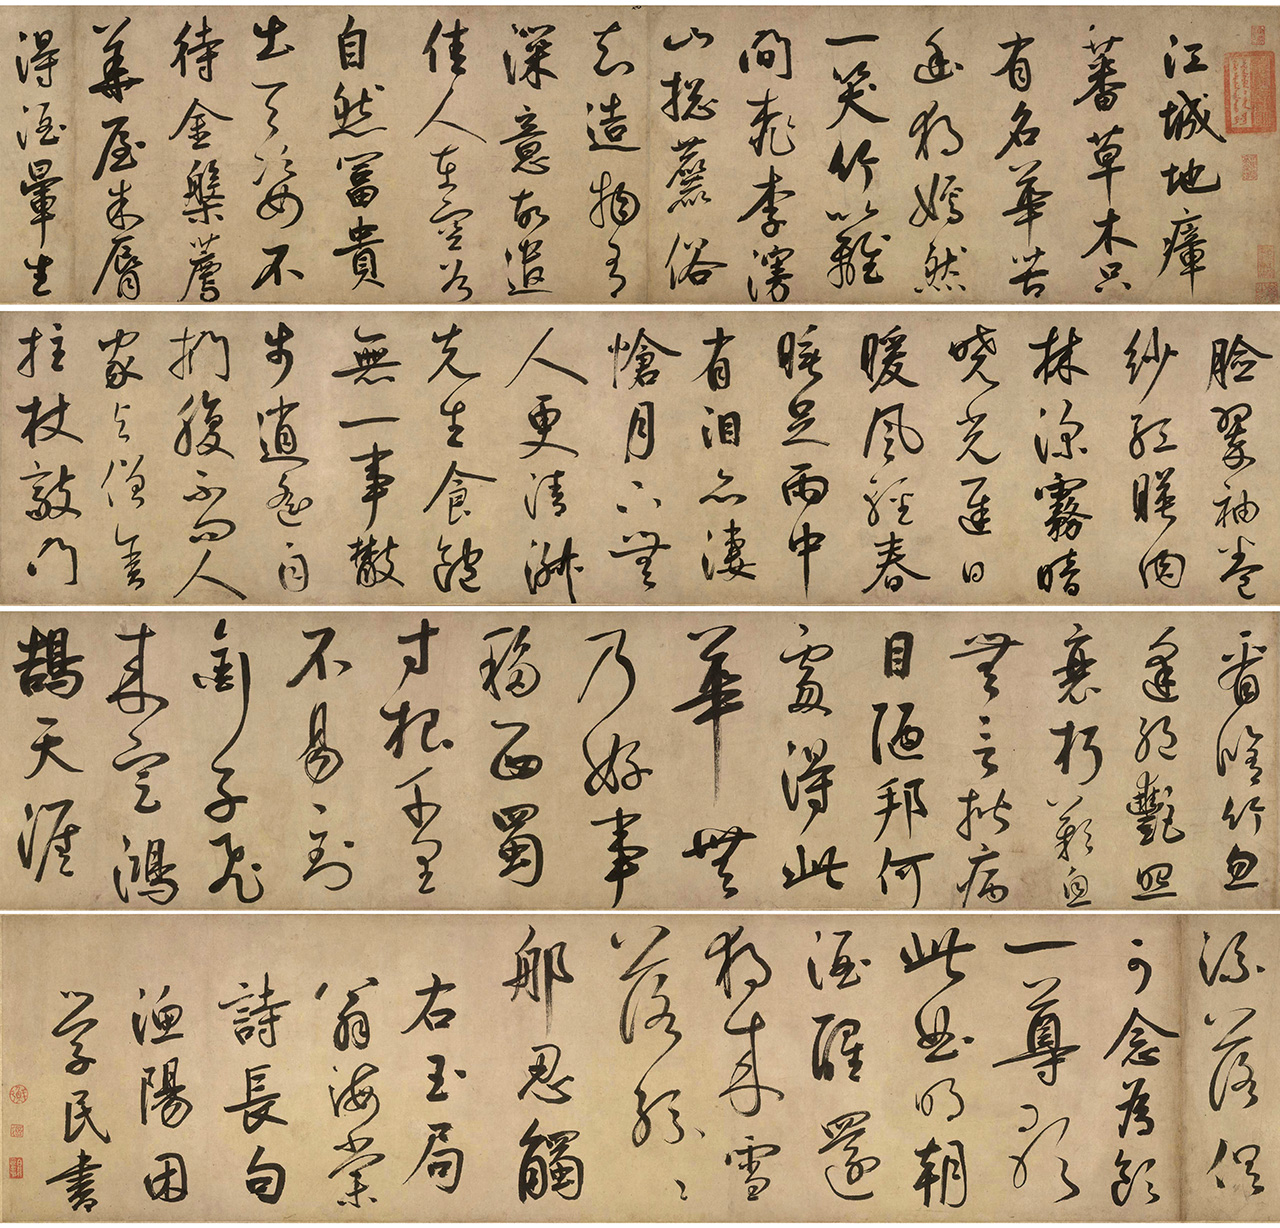 江城地瘴
蕃草木只
有名華苦
幽獨嫣然
一笑竹籬
間桃李漫
山總麤俗
知造物有
深意故遣
佳人在空谷
自然富貴
出天姿不
待金盤薦
華屋朱脣
得酒暈生
臉翠袖卷
紗紅映肉
林深霧暗
曉光遲日
暖風輕春
睡足雨中
有淚亦淒
愴月下無
人更清淑
先生食飽
無一事散
步逍遙自
捫腹不問人
家與僧舍
拄杖敲門
看脩竹忽
逢絕豔照
衰朽嘆息
無言揩病
目陋邦何
處得此
華無
乃好事
移西蜀
寸根千里
不易到
銜子飛
來定鴻
鵠天涯
流落俱
可念為飲
一尊歌
此曲明朝
酒醒還
獨來雪
落紛紛
那忍觸
右玉局
翁海棠
詩長句
漁陽困
學民書